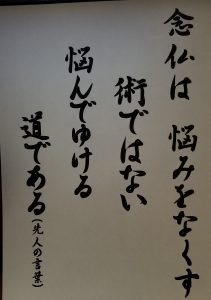 念仏は 悩みをなくす
術ではない
悩んでゆける
道である(先人の言葉)